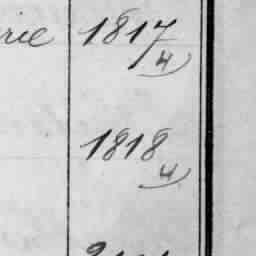 rie 1817
4
1818
4